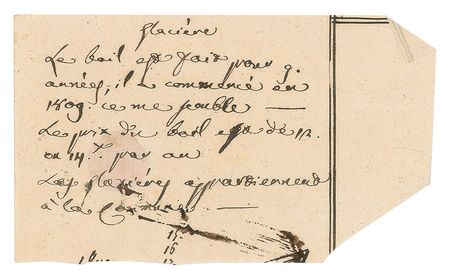 glacière
Le bail est fait pour 9.
années, il a commencé en
1809. ce me semble —
Le prix du bail est de 12.
ou 14.# par an
Les glacières appartiennent
à la Commune —
15.
16